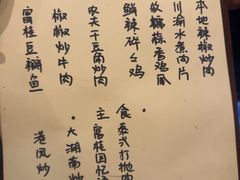 本地辣椒炒肉
川渝水煮肉片
蒜香鸡爪
鲜辣碎乡鸡
农夫干豆角炒肉
椒椒炒牛肉
富桂豆瓣鱼
食泰式打抛肉
主富桂回忆
大湖南炒
港风炒